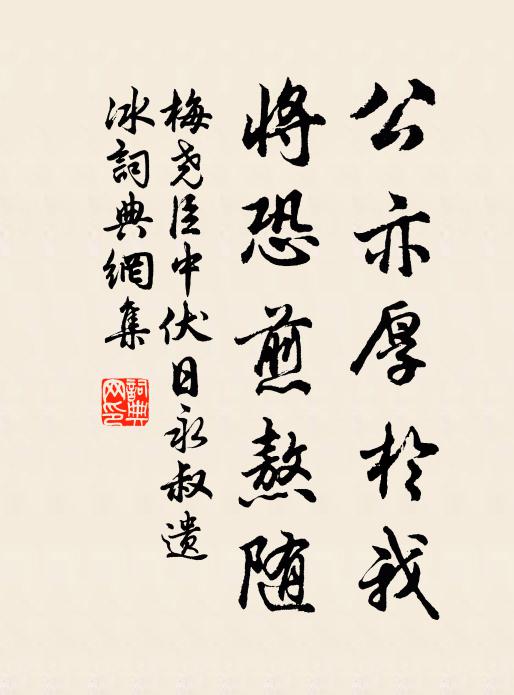 公亦厚於我
將恐煎熬随
梅尧臣中伏日永叔遗
冰詞典網集
詞典网印